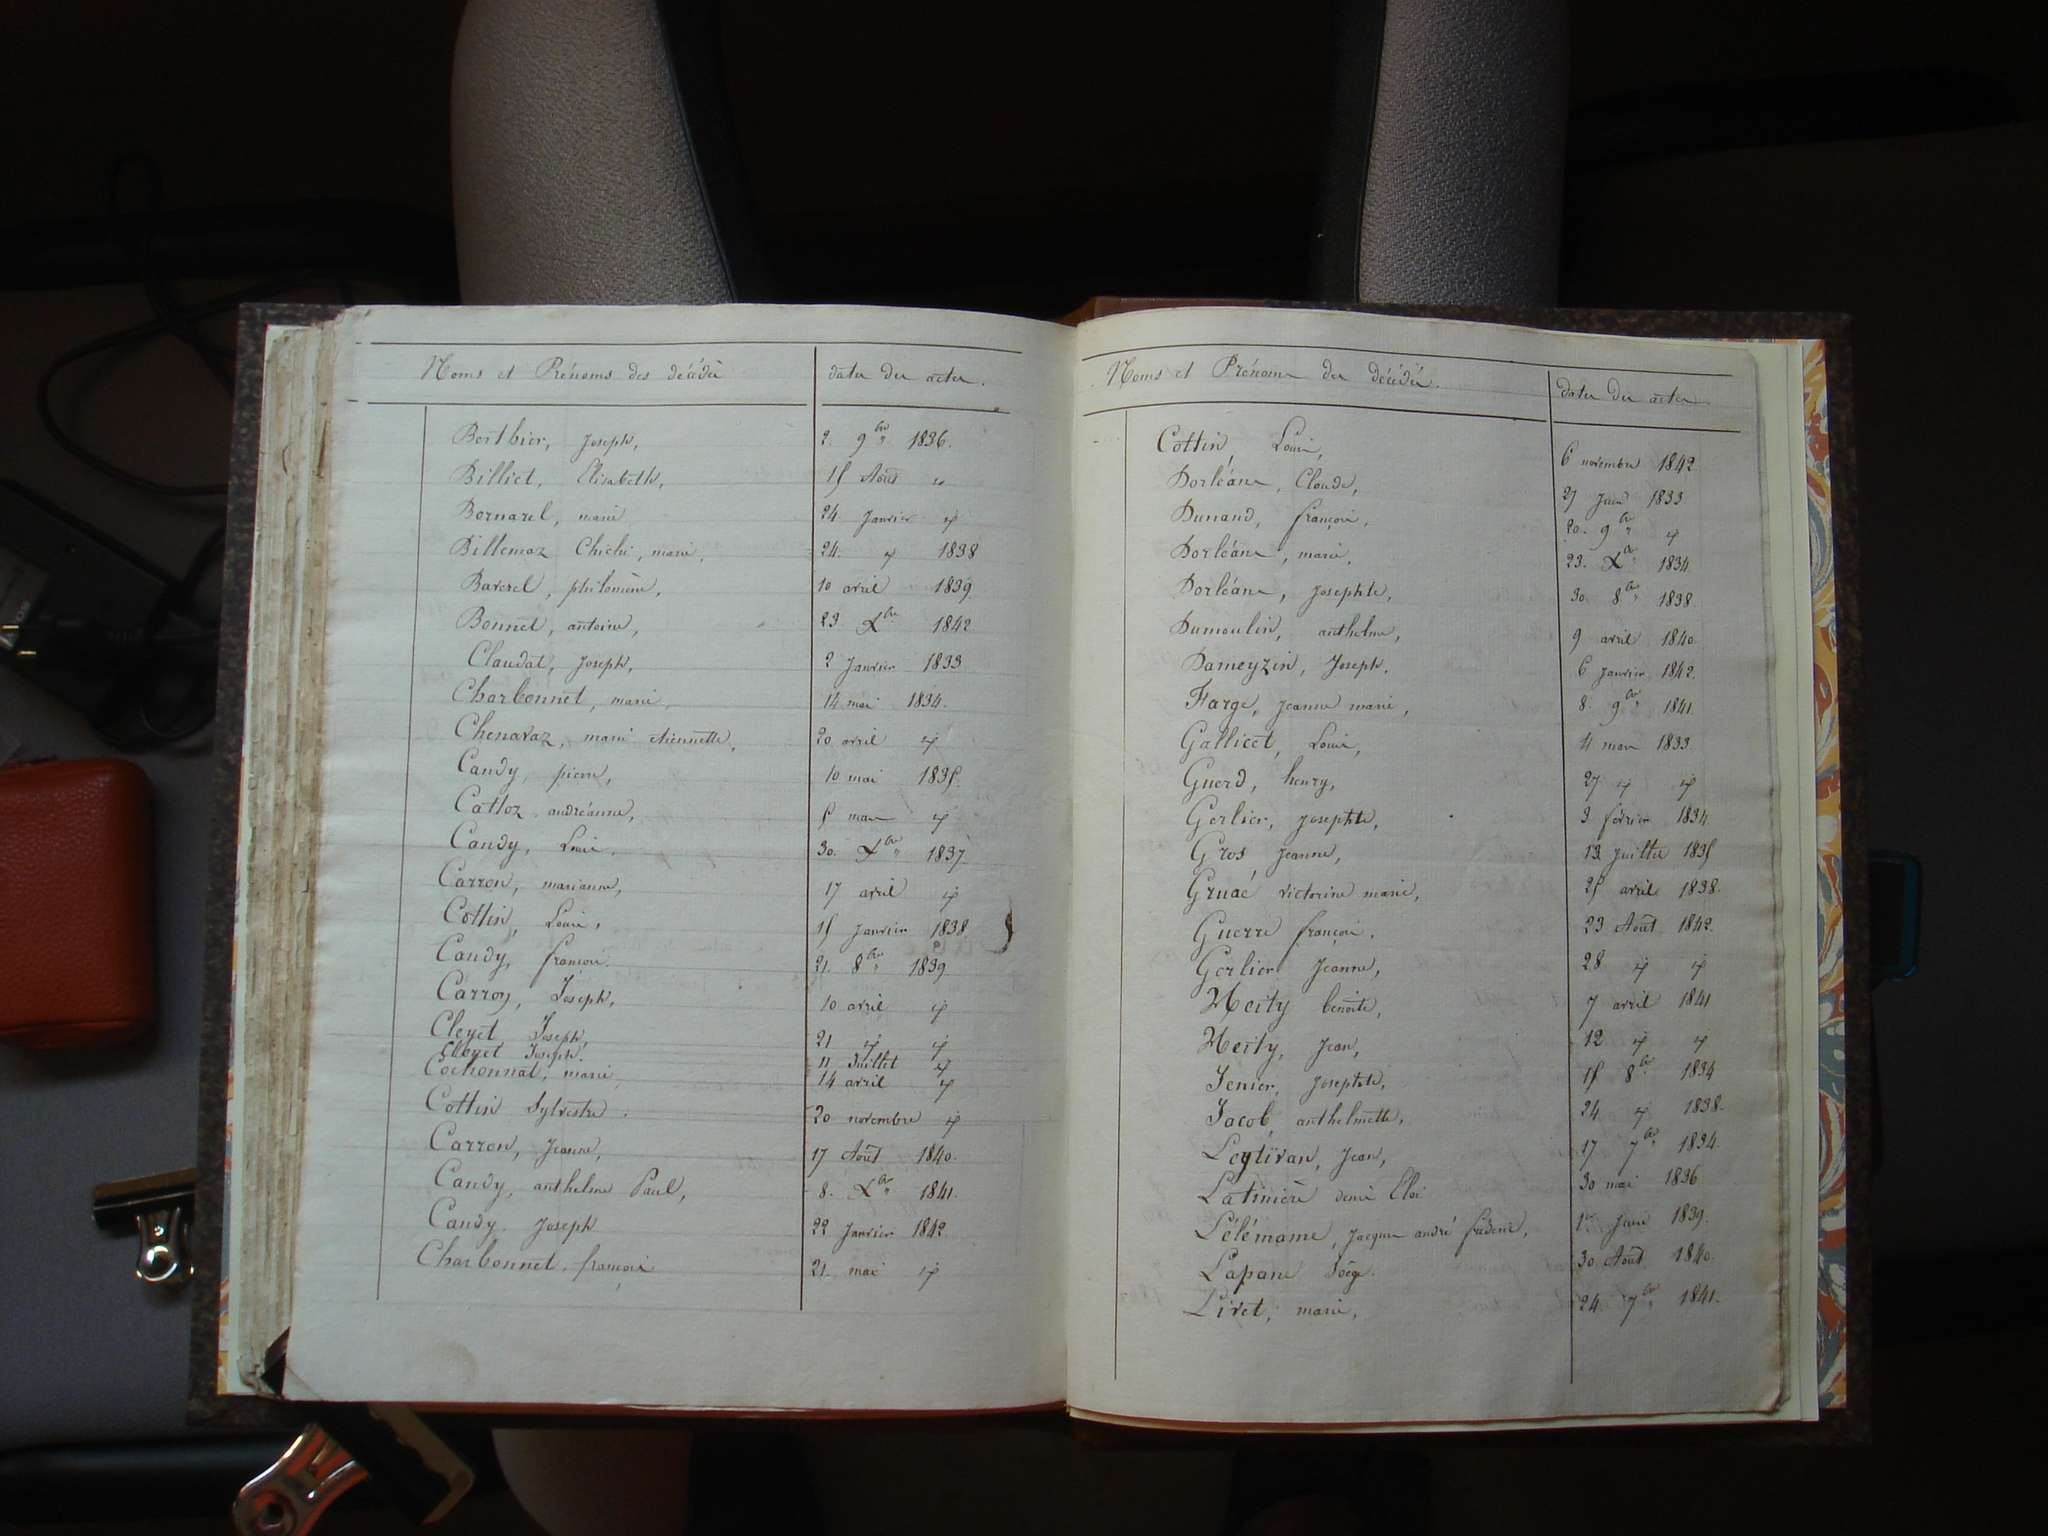 Noms et Prénoms des décédés dates des actes.
Berthier, Joseph, 2. 9bre 1836.
Billiet, Elisabeth, 15 Août "
Bornarel, marie 24 Janvier id
Billemaz Chichi, marie, 24. id 1838
Baverel, philomène, 10 avril 1839
Bonnet, antoine, 23. Xbre 1842
Claudat, Joseph, 2 Janvier 1833
Charbonnet, marie, 14 mai 1834.
Chenavaz, marie etiennette, 20 avril id
Candy, pierre, 10 mai 1835.
Cattoz andréanne, 5 mars id
Candy, Louis, 30. Xbre 1837
Carron, marianne, 17 avril id
Cottin, Louis, 15 Janvier 1838
Candy, françois. 21. 8bre 1839
Carron, Joseph, 10 avril id
Cleyet Joseph, 21 id id
Cleyet Joseph. 11 Juillet id
Cochonnat, marie 14 avril id
Cottin Sylvestre. 20 novembre id
Carron, Jeanne, 17 Août 1840.
Candy, anthelme Paul, 8. Xbre 1841.
Candy. Joseph 22 Janvier 1842
Charbonnet, françois 21. mai id
Noms et Prénoms des décédés. dates des actes
Cottin, Louis, 6 novembre 1842.
Dorléans, Claude, 27 Juin 1833
Dunand, françois, 20. 9bre id
Dorléans, marie, 23. Xbre 1834.
Dorléans, Josephte, 30. 8bre 1838.
Dumoulin, anthelme, 9 avril 1840.
Dameyzin, Joseph. 6 Janvier 1842.
Farge, Jeanne marie, 8. 9bre 1841.
Gallicet, Louis, 4 mars 1833.
Guerd, henry, 27 id id
Gerlier, Josephte, 3 février 1834
Gros Jeanne, 13 Juillet 1835
Gruaé victorine marie, 25 avril 1838.
Guerre françois. 23 Août 1842.
Gerlier Jeanne, 28 id id
Heity benoite, 7 avril 1841
Heity, Jean, 12 id id
Jenier, Josephte, 15 8bre 1834
Jacob, anthelmette, 24 id 1838.
Leytivan, Jean, 17 7bre 1834.
Latinière denis Eloi 30 mai 1836
Lélémame, Jacques andré fréderic, 1er Juin 1839.
Lapane 30 Août 1840.
Livet, marie, 24 7bre 1841.